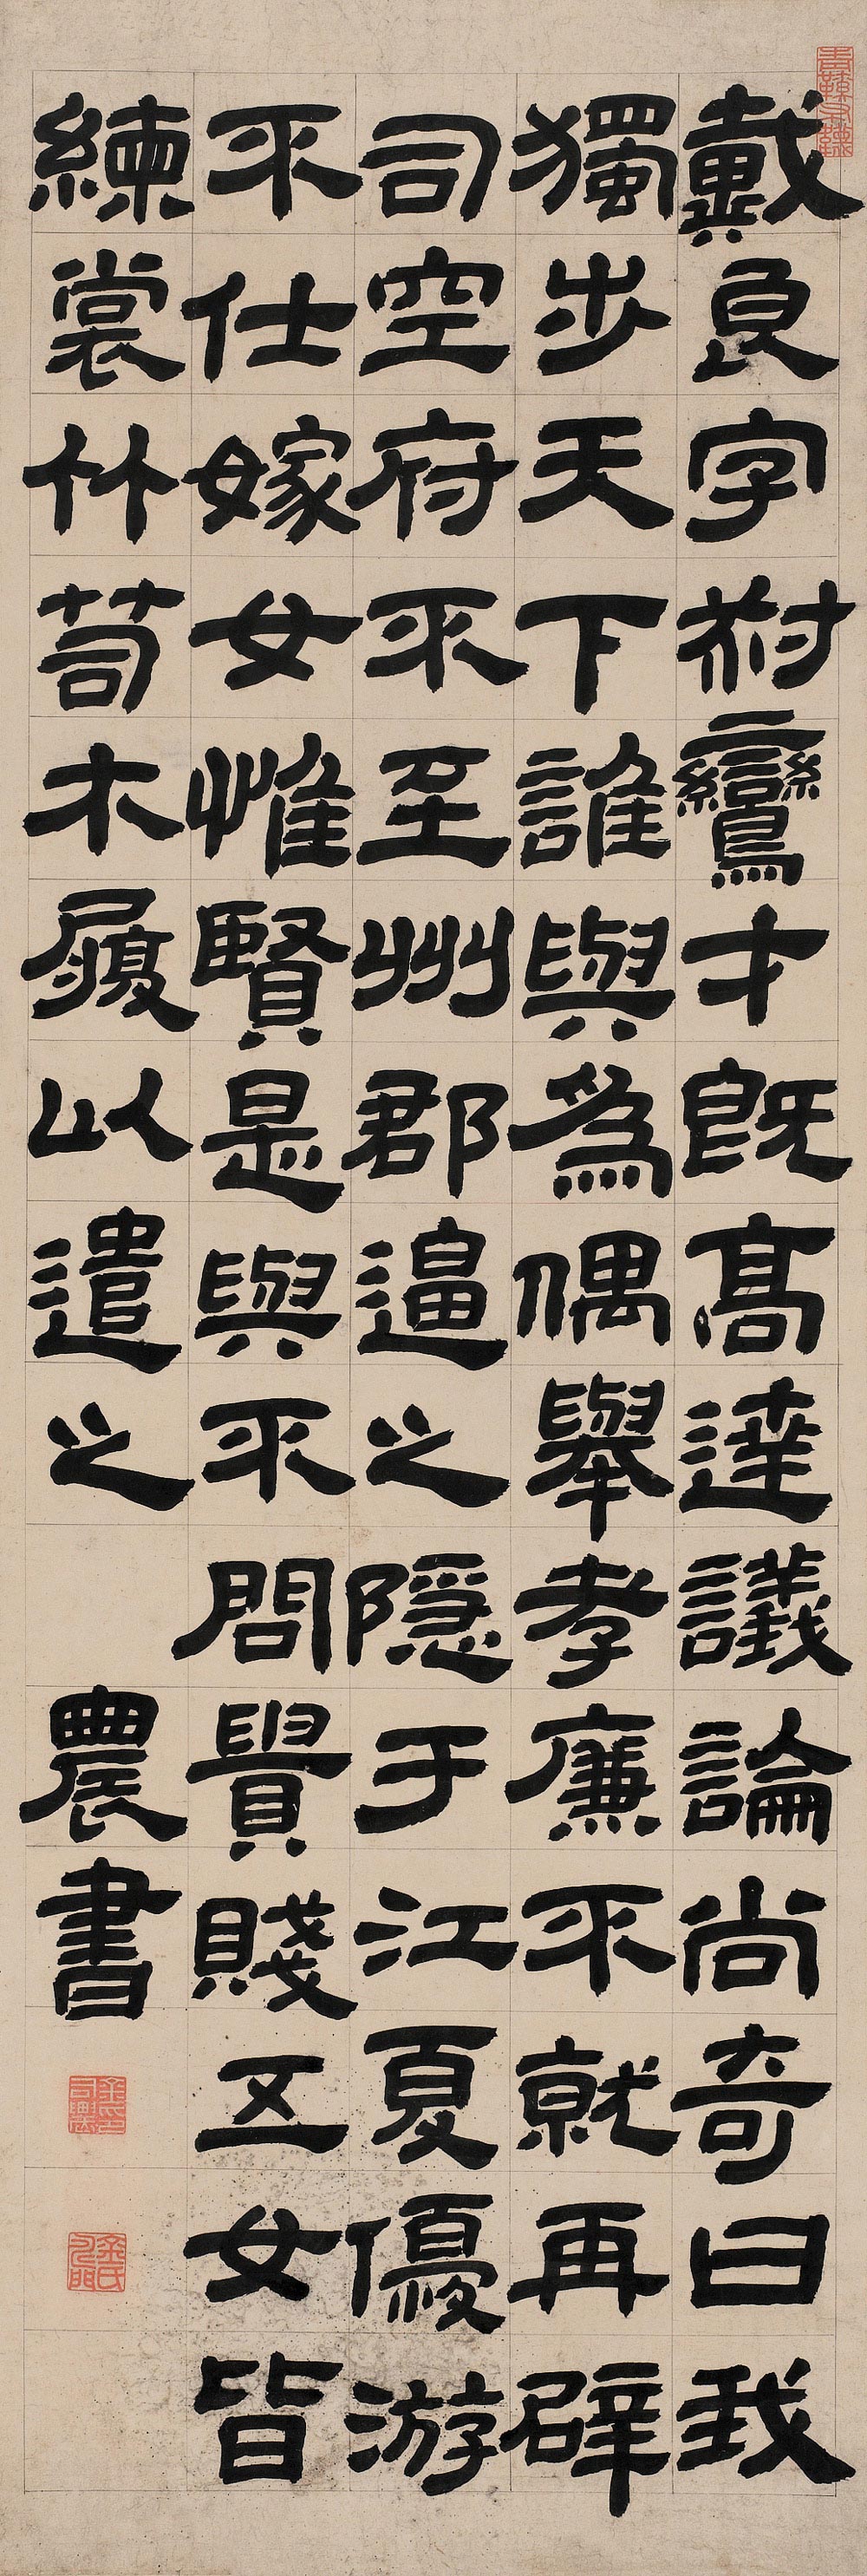 戴良字尌鸞才既高達議論尚奇曰我
獨步天下誰與為偶舉孝廉不就再辟
司空府不至州郡逼之隱于江夏優游
不仕嫁女惟賢是與不問貴賤五女皆
練裳竹笥木履以遣之 農書